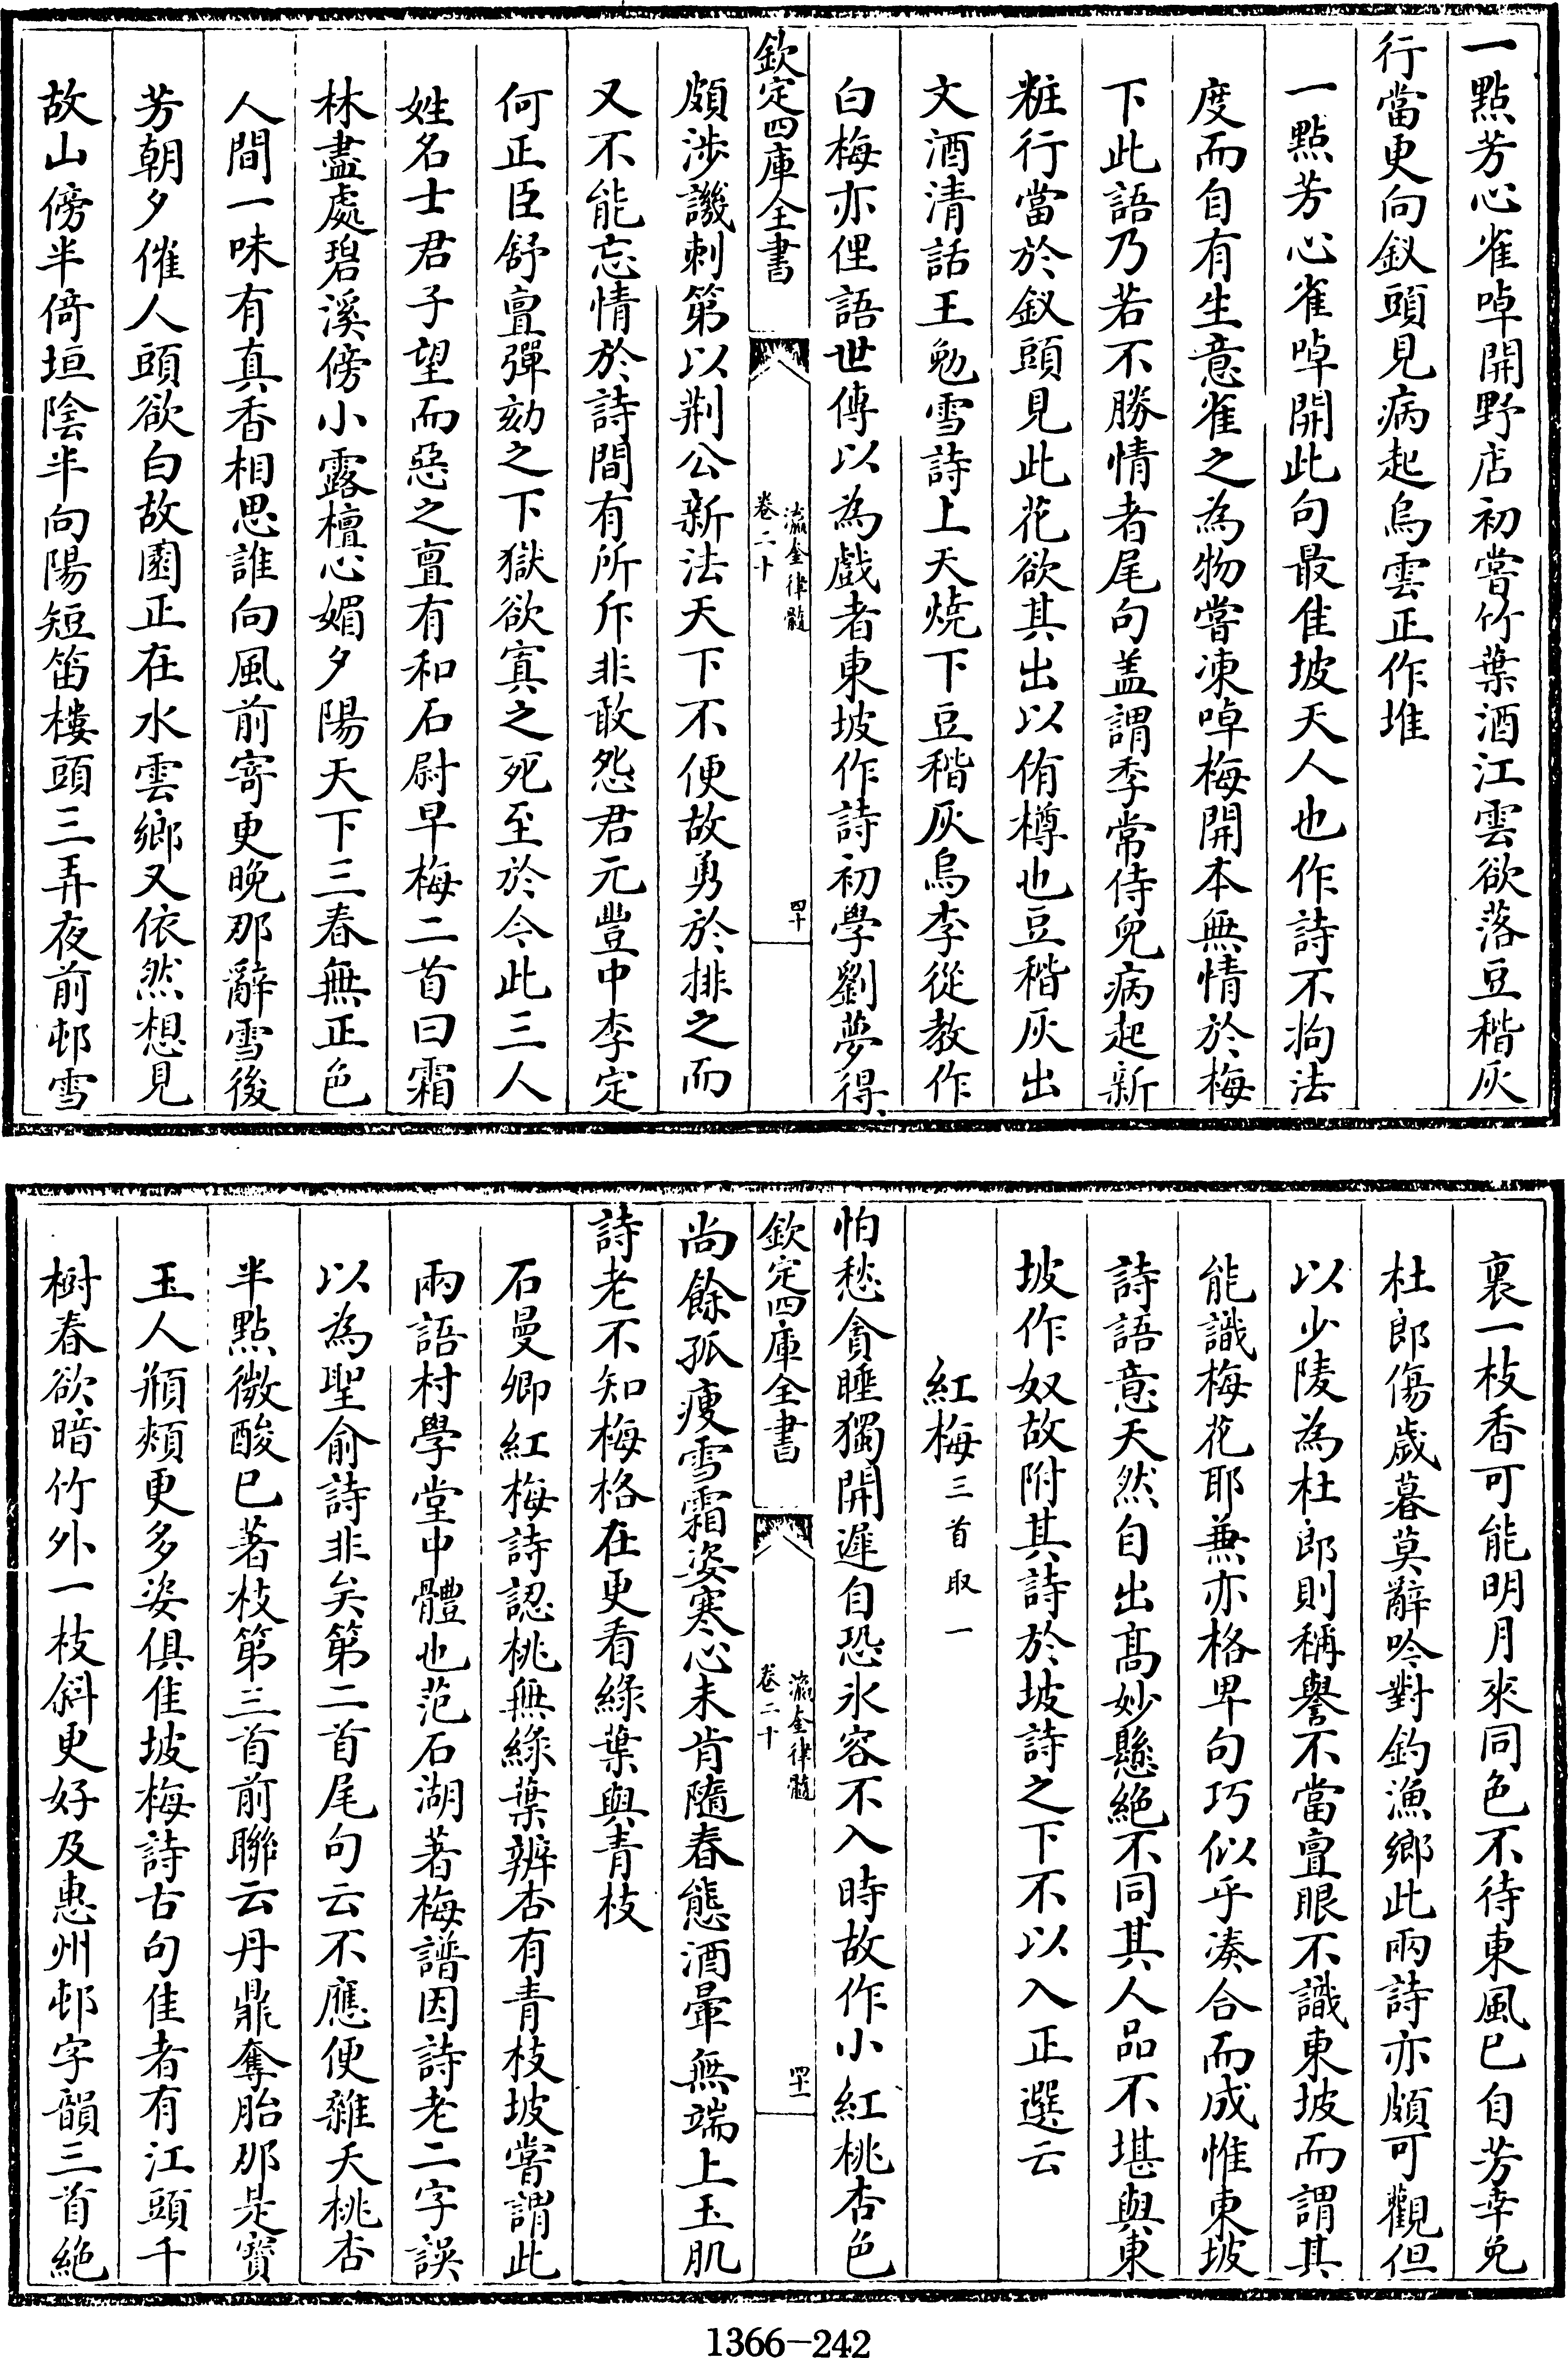 一點芳心雀啅開野店初嘗竹葉酒江雲欲落豆稭灰
行當更向釵頭見病起烏雲正作堆
一點芳心雀啅開此句最佳坡天人也作詩不拘法
度而自有生意雀之為物嘗凍啅梅開本無情於梅
下此語乃若不勝情者尾句盖謂季常侍兒病起新
粧行當於釵頭見此花欲其出以侑樽也豆稭灰出
文酒清話王勉雪詩上天燒下豆稭灰烏李從教作
白梅亦俚語世傳以為戲者東坡作詩初學劉夢得
欽定四庫全書
瀛奎律髓
卷二十
四十
頗涉譏刺第以荆公新法天下不便故勇於排之而
又不能忘情於詩間有所斥非敢怨君元豐中李定
何正臣舒亶彈劾之下獄欲寘之死至於今此三人
姓名士君子望而惡之亶有和石尉早梅二首曰霜
林盡處碧溪傍小露檀心媚夕陽天下三春無正色
人間一味有真香相思誰向風前寄更晚那辭雪後
芳朝夕催人頭欲白故園正在水雲鄉又依然想見
故山傍半倚垣陰半向陽短笛樓頭三弄夜前邨雪
裏一枝香可能明月來同色不待東風已自芳幸免
杜郎傷歲暮莫辭吟對釣漁鄉此兩詩亦頗可觀但
以少陵為杜郎則稱譽不當亶眼不識東坡而謂其
能識梅花耶兼亦格卑句巧似乎凑合而成惟東坡
詩語意天然自出髙妙懸絶不同其人品不堪與東
坡作奴故附其詩於坡詩之下不以入正選云
紅梅三首取一
怕愁貪睡獨開遲自恐氷容不入時故作小紅桃杏色
欽定四庫全書
瀛奎律髓
卷二十
四十一
尚餘孤瘦雪霜姿寒心未肯隨春態酒暈無端上玉肌
詩老不知梅格在更看綠葉與青枝
石曼卿紅梅詩認桃無綠葉辨杏有青枝坡嘗謂此
兩語村學堂中體也范石湖著梅譜因詩老二字誤
以為聖俞詩非矣第二首尾句云不應便雜夭桃杏
半點微酸已著枝第三首前聯云丹鼎奪胎那是寶
玉人頩頰更多姿俱佳坡梅詩古句佳者有江頭千
樹春欲暗竹外一枝斜更好及惠州邨字韻三首絶
1366-242